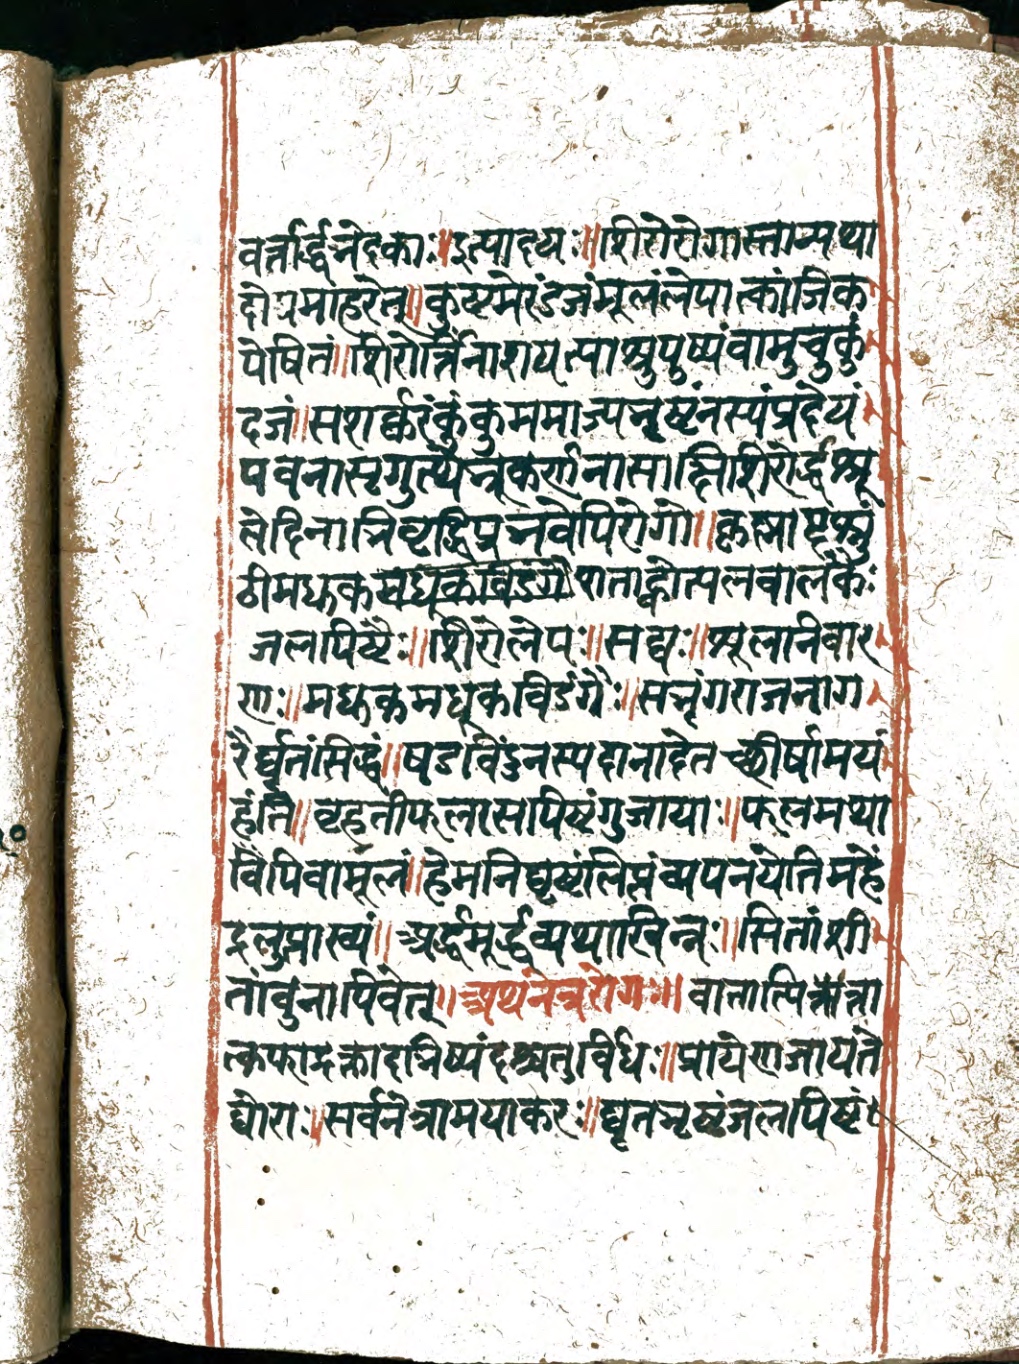 वर्त्तार्द्धनेदकाः॥इत्पादयः॥शिरोरोगास्ताम्पथा
दोयमाहरेत्॥कुष्टमेरंडजंमूलंलेपात्कांजिक
पेषितं॥शिरोर्त्तिंनाशयत्पाश्रुपुष्पंवामुचुकुं
दजं॥सशर्क्करंकुंकुममाज्पभृष्टंनस्पंप्रदेयं
पवनासृगुत्थेभ्रूकर्णनासाक्षिशिरोर्द्धश्रू
लेदिनात्रिवृद्धिप्रभवेपिरोगे॥कृस्माष्टश्रुं
ठीमध्रुक शताह्वोत्पलवालकैः
जलपिष्टैः॥शिरोलेपः॥सद्यः॥श्रूलानिवार
णः॥मध्रुकमधूकविडंगैः॥सभृंगराजनाग
रैर्घृतंसिद्धं॥षडविंडुनस्पदानादेतच्छीर्षामयं
हंति॥वृहतीफलरसापिष्टंगुजायाः॥फलमथा
विपिवामूलं॥हेमनिघृष्टंलिप्तंव्यपनयेतिमहें
द्रलुप्ताख्यं॥अर्द्धमूर्द्धव्यथाखिन्नः॥सितांशी
तांवुनापिवेत्॥अथनेत्ररोगः॥॥वातात्पित्तात्रा
त्कफाद्रक्तादभिष्यंदश्चतुर्विधः॥प्रायेणजायंते
घोराः॥सर्वनेत्रामयाकरः॥घृतभृष्टंजलपिष्टं